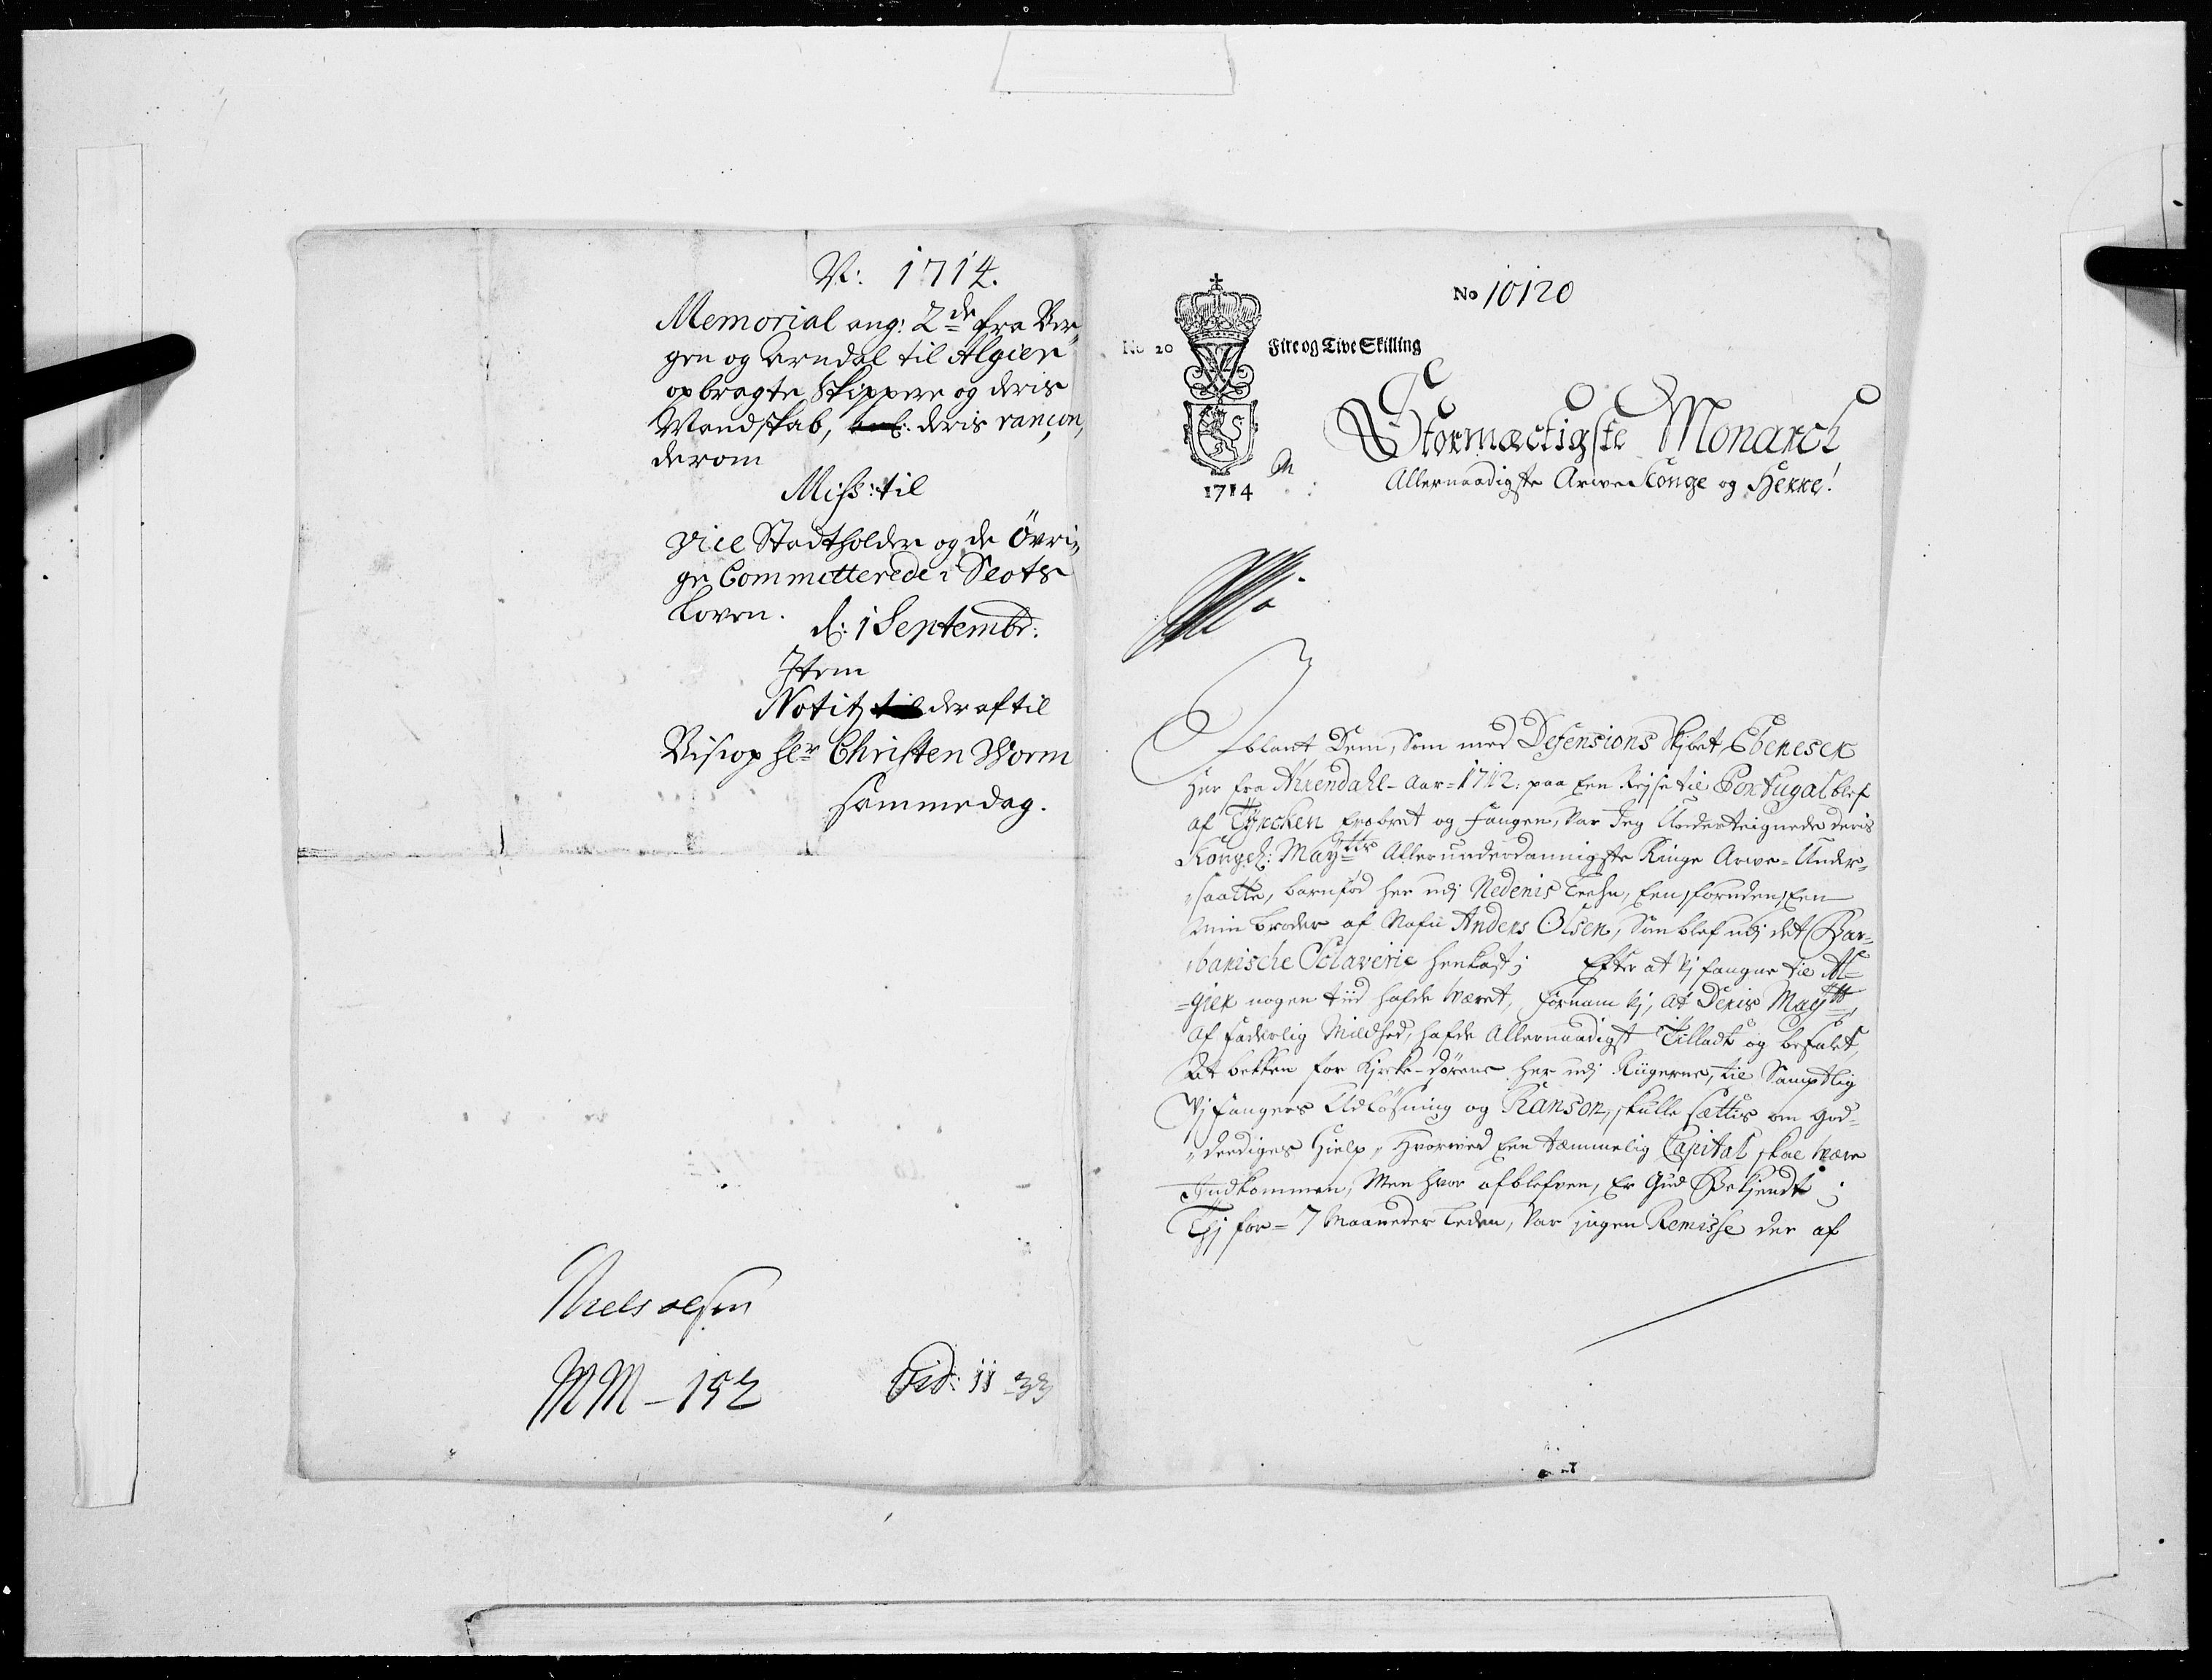 N: 1714.
Memorial ang: 2de fra Ber„
gen og Arndal til Algier
opbragte Skippere og deris
Mandskab, deris rançon,
derom
Miss: til
Vice Stadtholder og de Övri„
ge Committerede i Slots
Loven.
d: 1 Septembr:
Item
Notitz til der af til
Biscop Hr Christen Worm
samme dag.
Niels olsen
NM - 152
Fid: 11
No 10120
No 20 Fire og Tive Skilling
1714
Stormæctigste Monarch
Allernaadigste Arwe Konge og Herre!
Iblant Dem, Som med Defensions Skibet Ebeneser
her fra Ahrendahl - Aar = 1712: paa Een Reyse til Portugal blef
af Tyrcken Erobret og fangen, Var Jeg Underteignede deris
Kongel: Maytts Allerunderdannigste Ringe Arve-Under„
„saatte, barnfød her udj Nedenis Lehn, Een, foruden Een
Min broder af Nafn Anders Olsen, Som blef udj det Bar„
„barische Sclaverie henkast; Efter at Vj fangne til Al„
=gier nogen tiid hafde veret, fornam Vj, at Deris Maytt,
af faderlig Mildhed, hafde Allernaadigst Tilladt og befalet,
At becken for Kircke-dørene her udj Riigerne, til Samptlig
Vj fangers Udløsning og Ranson, skulle sættis om god„
„dædiges Hielp, hvorved Een temmelig Capital skal være
Indkommen, Men hvor afblefven, Er Gud Bekjendt;
Thj for = 7 Maaneder Leden, Var jngen Remisse der af